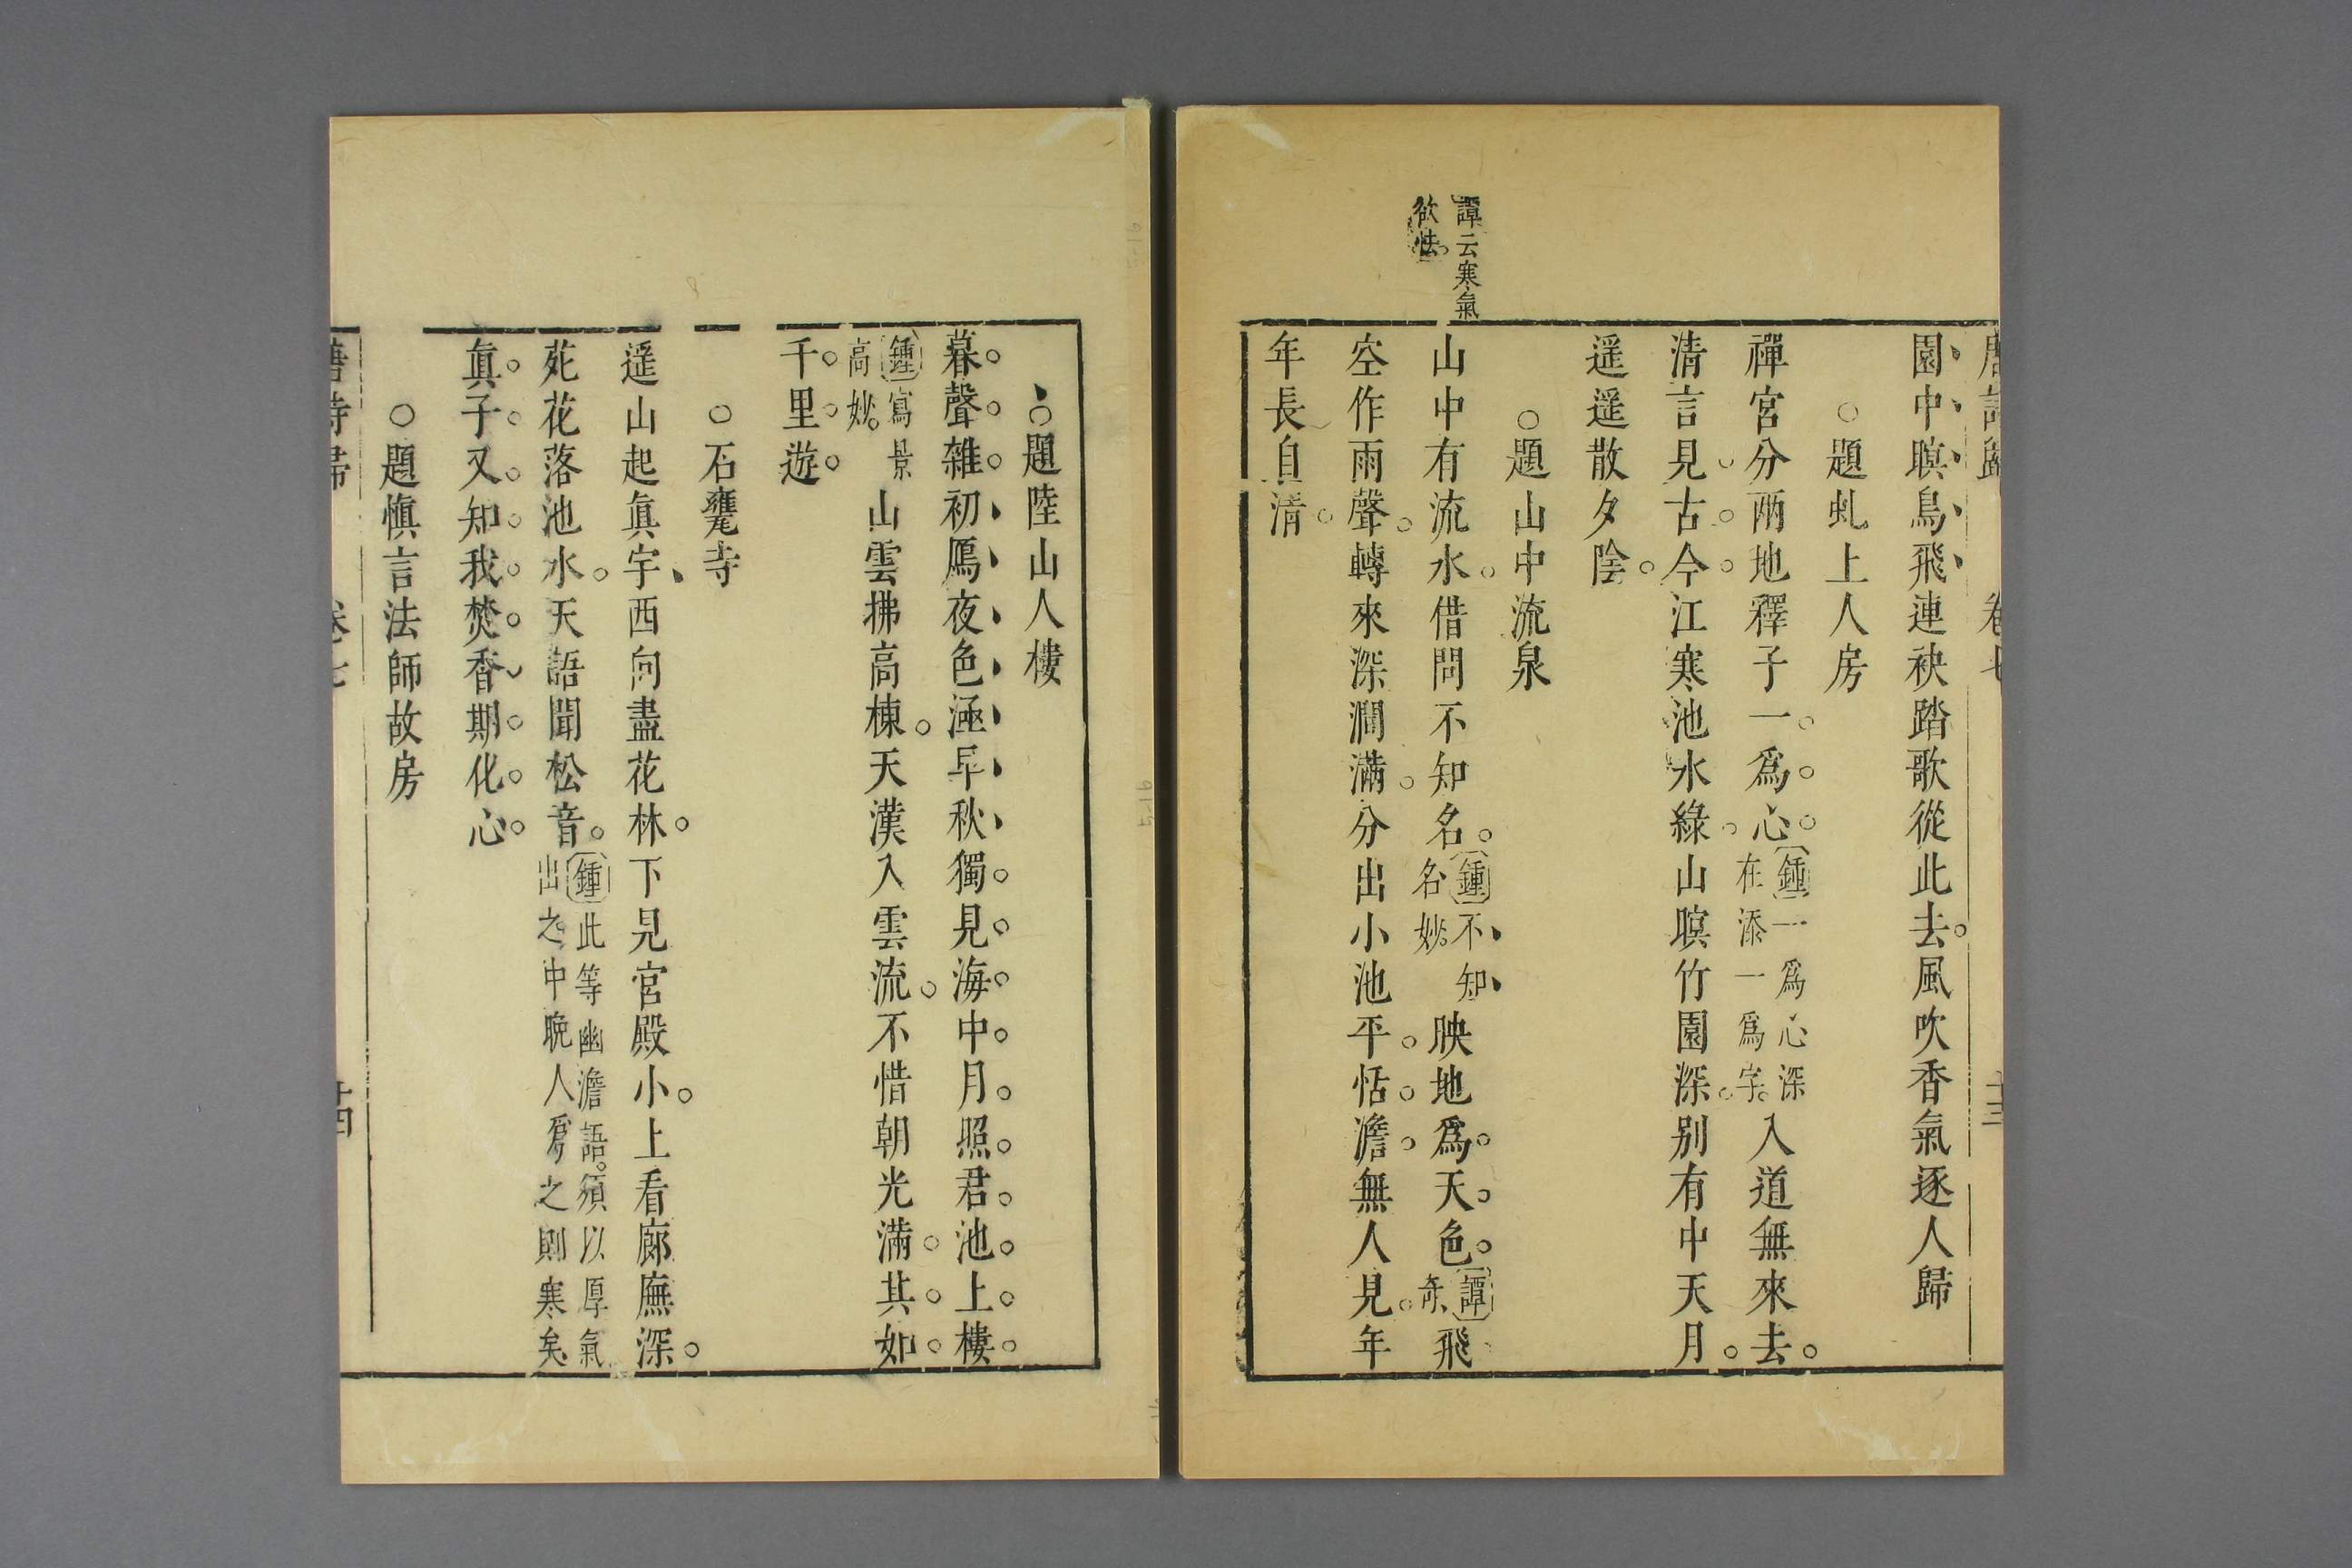 唐詩歸 卷七 十三
園中暝鳥飛連袂踏歌從此去風吹香氣逐人歸
○題虬上人房
禪宮分兩地釋子一爲心鍾一爲心深在添一爲字入道無來去
清言見古今江寒池水綠山暝竹園深別有中天月
遥遥散夕陰
○題山中流泉
譚云寒氣
欲怯
山中有流水借問不知名鍾不知名妙映地爲天色譚奇飛
空作雨聲轉來深澗滿分出小池平恬澹無人見年
年長自清
○題陸山人樓
暮聲雜初鴈夜色涵早秋獨見海中月照君池上樓
鍾寫景高妙山雲拂高棟天漢入雲流不惜朝光滿其如
千里遊
○石甕寺
遥山起眞宇西向盡花林下見宮殿小上看廊廡深
苑花落池水天語聞松音鍾此等幽澹語須以厚氣出之中晚人爲之則寒矣
眞子又知我焚香期化心
○題愼言法師故房
唐詩歸 卷七 十四